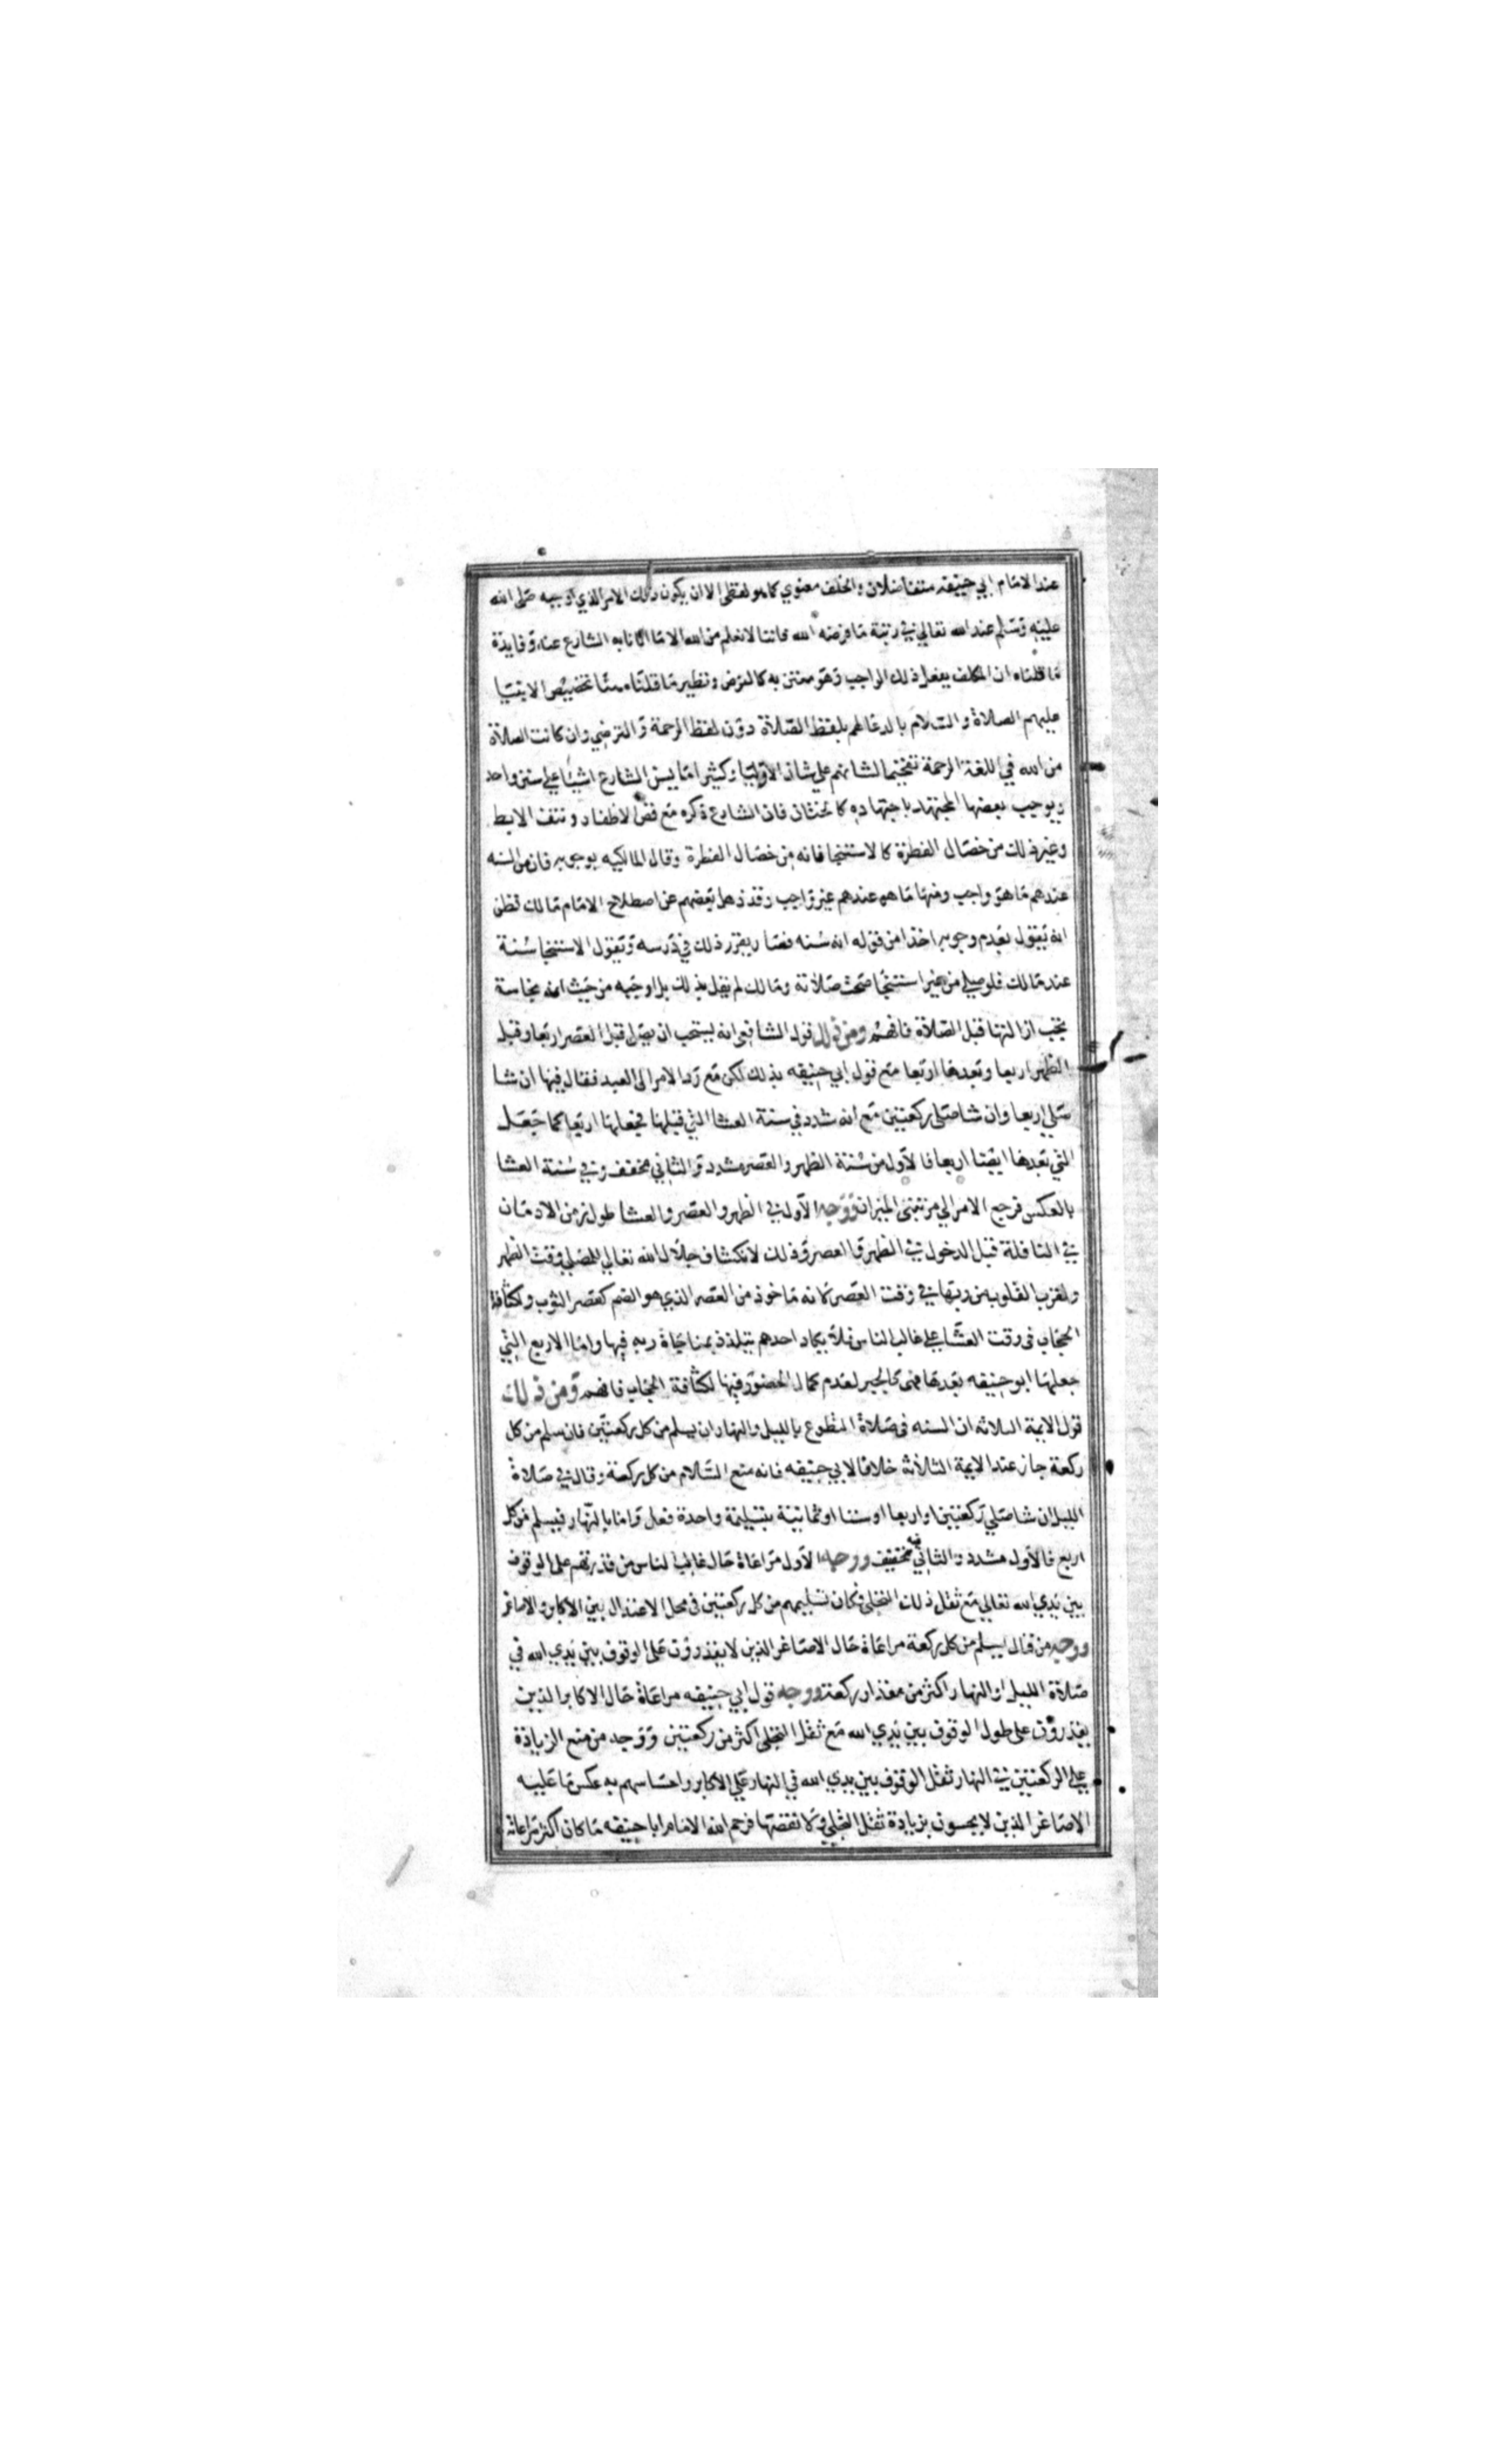 عند الامام ابي حنيفه متفاضلان والخلف معنوي كما هو لفظي الا ان يكون ذلك الامر الذي اوجبه صلى الله
عليه وسلم عند الله تعالي في رتبة ما فرضه الله فاننا لا نعلم من الله الا ما اتانا به الشارع عنه وفايدة
ما قلناه ان المكلف يفعل ذلك الواجب وهو معتن به كالفرض ونظير ما قلناه هنا تخصيص الانبيا
عليهم الصلاة والسلام بالدعا لهم بلفظ الصلاة دون لفظ الرحمة والترضي وان كانت الصلاة
من الله في اللغة الرحمة تفخيما لشانهم علي شان الاوليا وكثيرا ما يسن الشارع اشيا علي سنن واحد
ويوجب بعضها المجتهد باجتهاده كالختان فان الشارع ذكره مع قص الاظفار ونتف الابط
وغير ذلك من خصال الفطرة كالاستنجا فانه من خصال الفطرة وقال المالكيه بوجوبه فان من السنه
عندهم ما هو واجب ومنها ما هو عندهم غير واجب وقد ذهل بعضهم عن اصطلاح الامام مالك فظن
انه يقول بعدم وجوبه اخذا من قوله انه سنه فصار يقرر ذلك في درسه ويقول الاستنجا سنة
عند مالك فلو صلي من غير استنجا صحت صلاته ومالك لم يقل بذلك بل اوجبه من حيث انه نجاسة
يجب ازالتها قبل الصلاة فافهم ومن ذلك قول الشافعي انه يستحب ان يصلي قبل العصر اربعا وقبل
الظهر اربعا وبعدها اربعا مع قول ابي حنيفه بذلك لكن مع رد الامر الي العبد فقال فيها ان شا
صلي اربعا وان شا صلي ركعتين مع انه شدد في سنة العشا التي قبلها فجعلها اربعا كما جعل
التي بعدها ايضا اربعا فالاول من سنة الظهر والعصر مشدد والثاني مخفف وفي سنة العشا
بالعكس فرجع الامر الي مرتبتي الميزان ووجه الاول في الظهر والعصر والعشا طول زمن الادمان
في النافلة قبل الدخول في الظهر والعصر وذلك لانكشاف جلال الله تعالي للمصلي وقت الظهر
ولقرب القلوب من ربها في وقت العصر كانه ماخوذ من العصر الذي هو الضم كعصر الثوب ولكثافة
الحجاب في وقت العشا علي غالب الناس فلا يكاد احدهم يتلذذ بمناجاة ربه فيها واما الاربع التي
جعلها ابو حنيفه بعدها فهي كالجبر لعدم كمال الحضور فيها لكثافة الحجاب فافهم ومن ذلك
قول الايمة الثلاثه ان السنه في صلاة التطوع بالليل والنهار ان يسلم من كل ركعتين فان سلم من كل
ركعة جاز عند الايمة الثلاثه خلافا لابي حنيفه فانه منع السلام من كل ركعة وقال في صلاة
الليل ان شا صلي ركعتين او اربعا او ستا او ثمانية بتسليمة واحدة فعل واما بالنهار فيسلم من كل
اربع فالاول مشدد والثاني فيه تخفيف ووجه الاول مراعاة حال غالب الناس من قدرتهم علي الوقوف
بين يدي الله تعالي مع ثقل ذلك التجلي فكان تسليمهم من كل ركعتين في محل الاعتدال بين الاكابر والاصاغر
ووجه من قال يسلم من كل ركعة مراعاة حال الاصاغر الذين لا يقدرون علي الوقوف بين يدي الله في
صلاة الليل والنهار اكثر من مقدار ركعة ووجه قول ابي حنيفه مراعاة حال الاكابر الذين
يقدرون علي طول الوقوف بين يدي الله مع ثقل التجلي اكثر من ركعتين ووجه من منع الزيادة
علي الركعتين في النهار ثقل الوقوف بين يدي الله في النهار علي الاكابر واحساسهم به عكس ما عليه
الاصاغر الذين لا يحسون بزيادة ثقل التجلي ولا نقصها فرحم الله الامام ابا حنيفه ما كان اكثر مراعاته